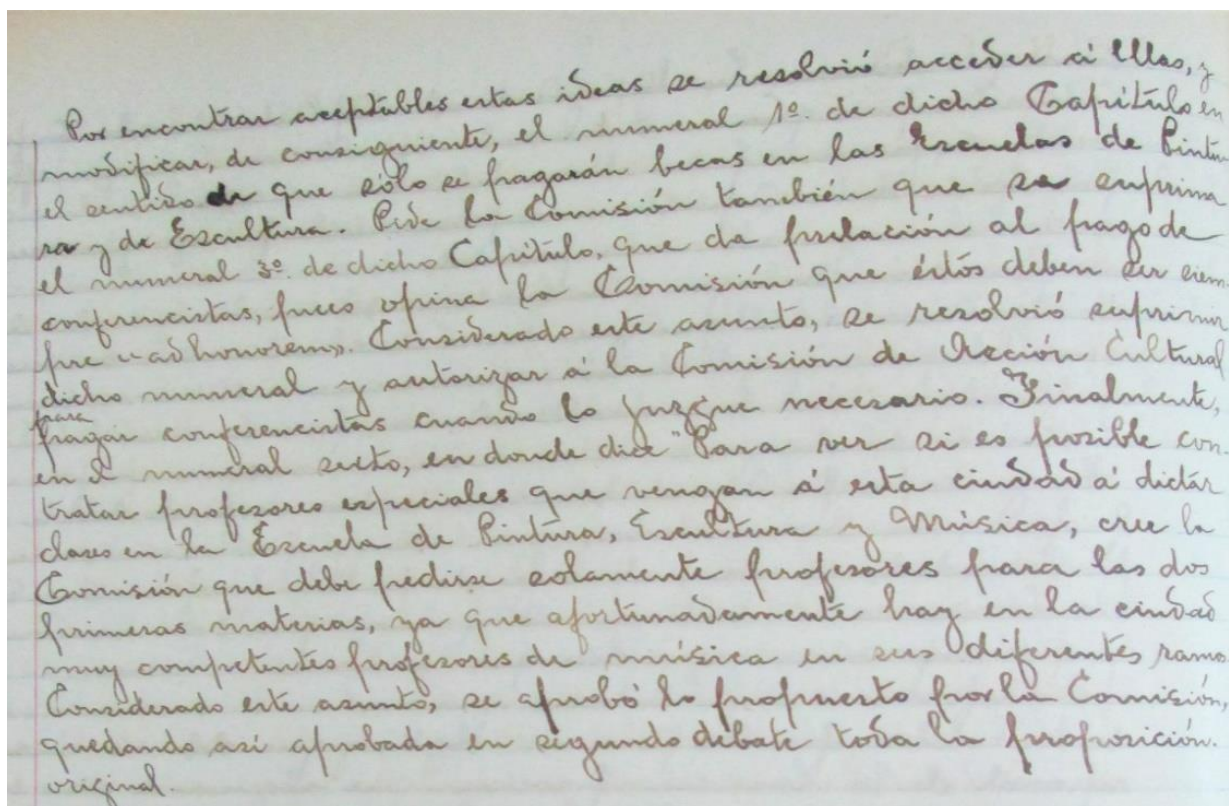 Por encontrar aceptables estas ideas se resolvió acceder á ellas, y
modificar, de consiguiente, el numeral 1º. de dicho Capítulo en
el sentido de que sólo se pagarán becas en las Escuelas de Pintu
ra y de Escultura. Pide la Comisión también que se suprima
el numeral 3º. de dicho Capítulo, que da prelación al pago de
conferencistas, pues opina la Comisión que éstos deben ser siem
pre "ad honorem". Considerado este asunto, se resolvió suprimir
dicho numeral y autorizar á la Comisión de Acción Cultural
para
pagar conferencistas cuando lo juzgue necesario. Finalmente,
en el numeral sexto, en donde dice "Para ver si es posible con-
tratar profesores especiales que vengan á esta ciudad á dictar
clases en la Escuela de Pintura, Escultura y Música, cree la
Comisión que debe pedirse solamente profesores para las dos
primeras materias, ya que afortunadamente hay en la ciudad
muy competentes profesores de música en sus diferentes ramos
Considerado este asunto, se aprobó lo propuesto por la Comisión,
quedando así aprobada en segundo debate toda la proposición.
original.